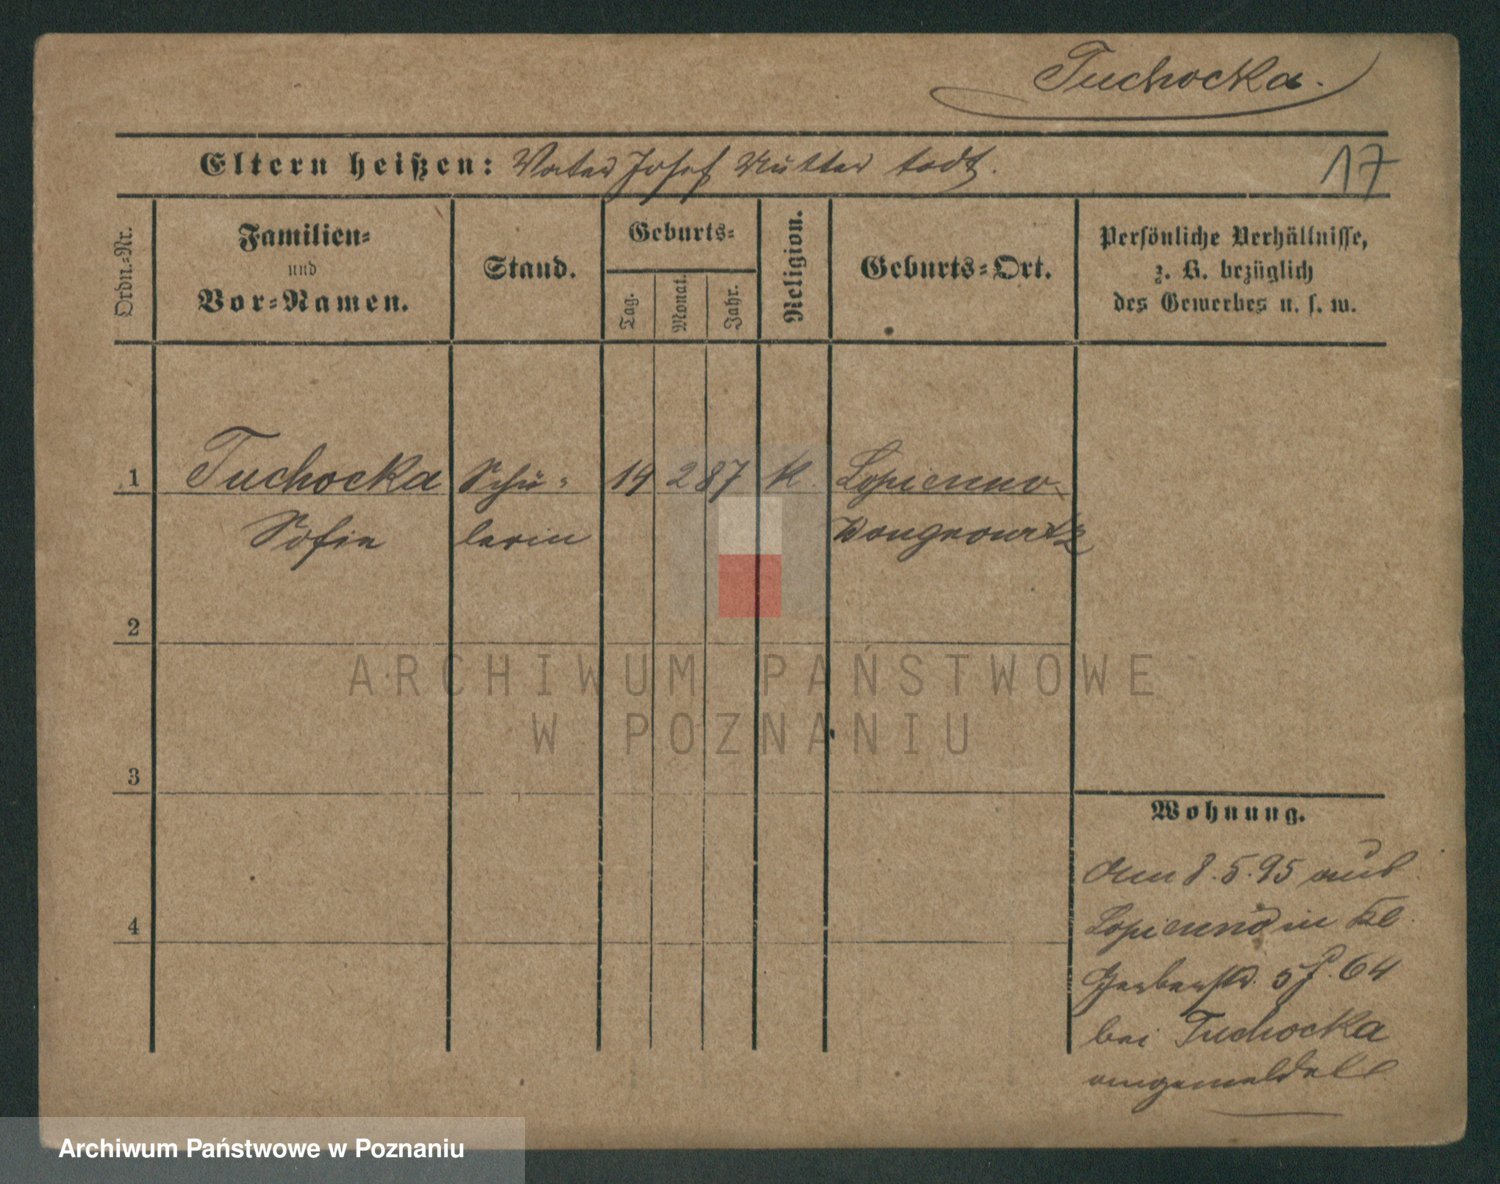 Tuchocka.
Eltern heißen: Vater Josef Mutter todt.
17
Ordn.-Nr.
Familien-
und
Vor-Namen.
Stand.
Geburts-
Tag.
Monat.
Jahr.
Religion.
Geburts-Ort.
Persönliche Verhältnisse,
z. B. bezüglich
des Gewerbes u. s. w.
1 Tuchocka Schü- 14 2 87 K. Lopienno
Sofie lerin Wongrowitz
2
3
4
Wohnung.
Am 8.5.95 aus
Lopienno in Kl
Gerberstr. 64
bei Tuchocka
angemeldet
ARCHIWUM PAŃSTWOWE
W POZNANIU
Archiwum Państwowe w Poznaniu